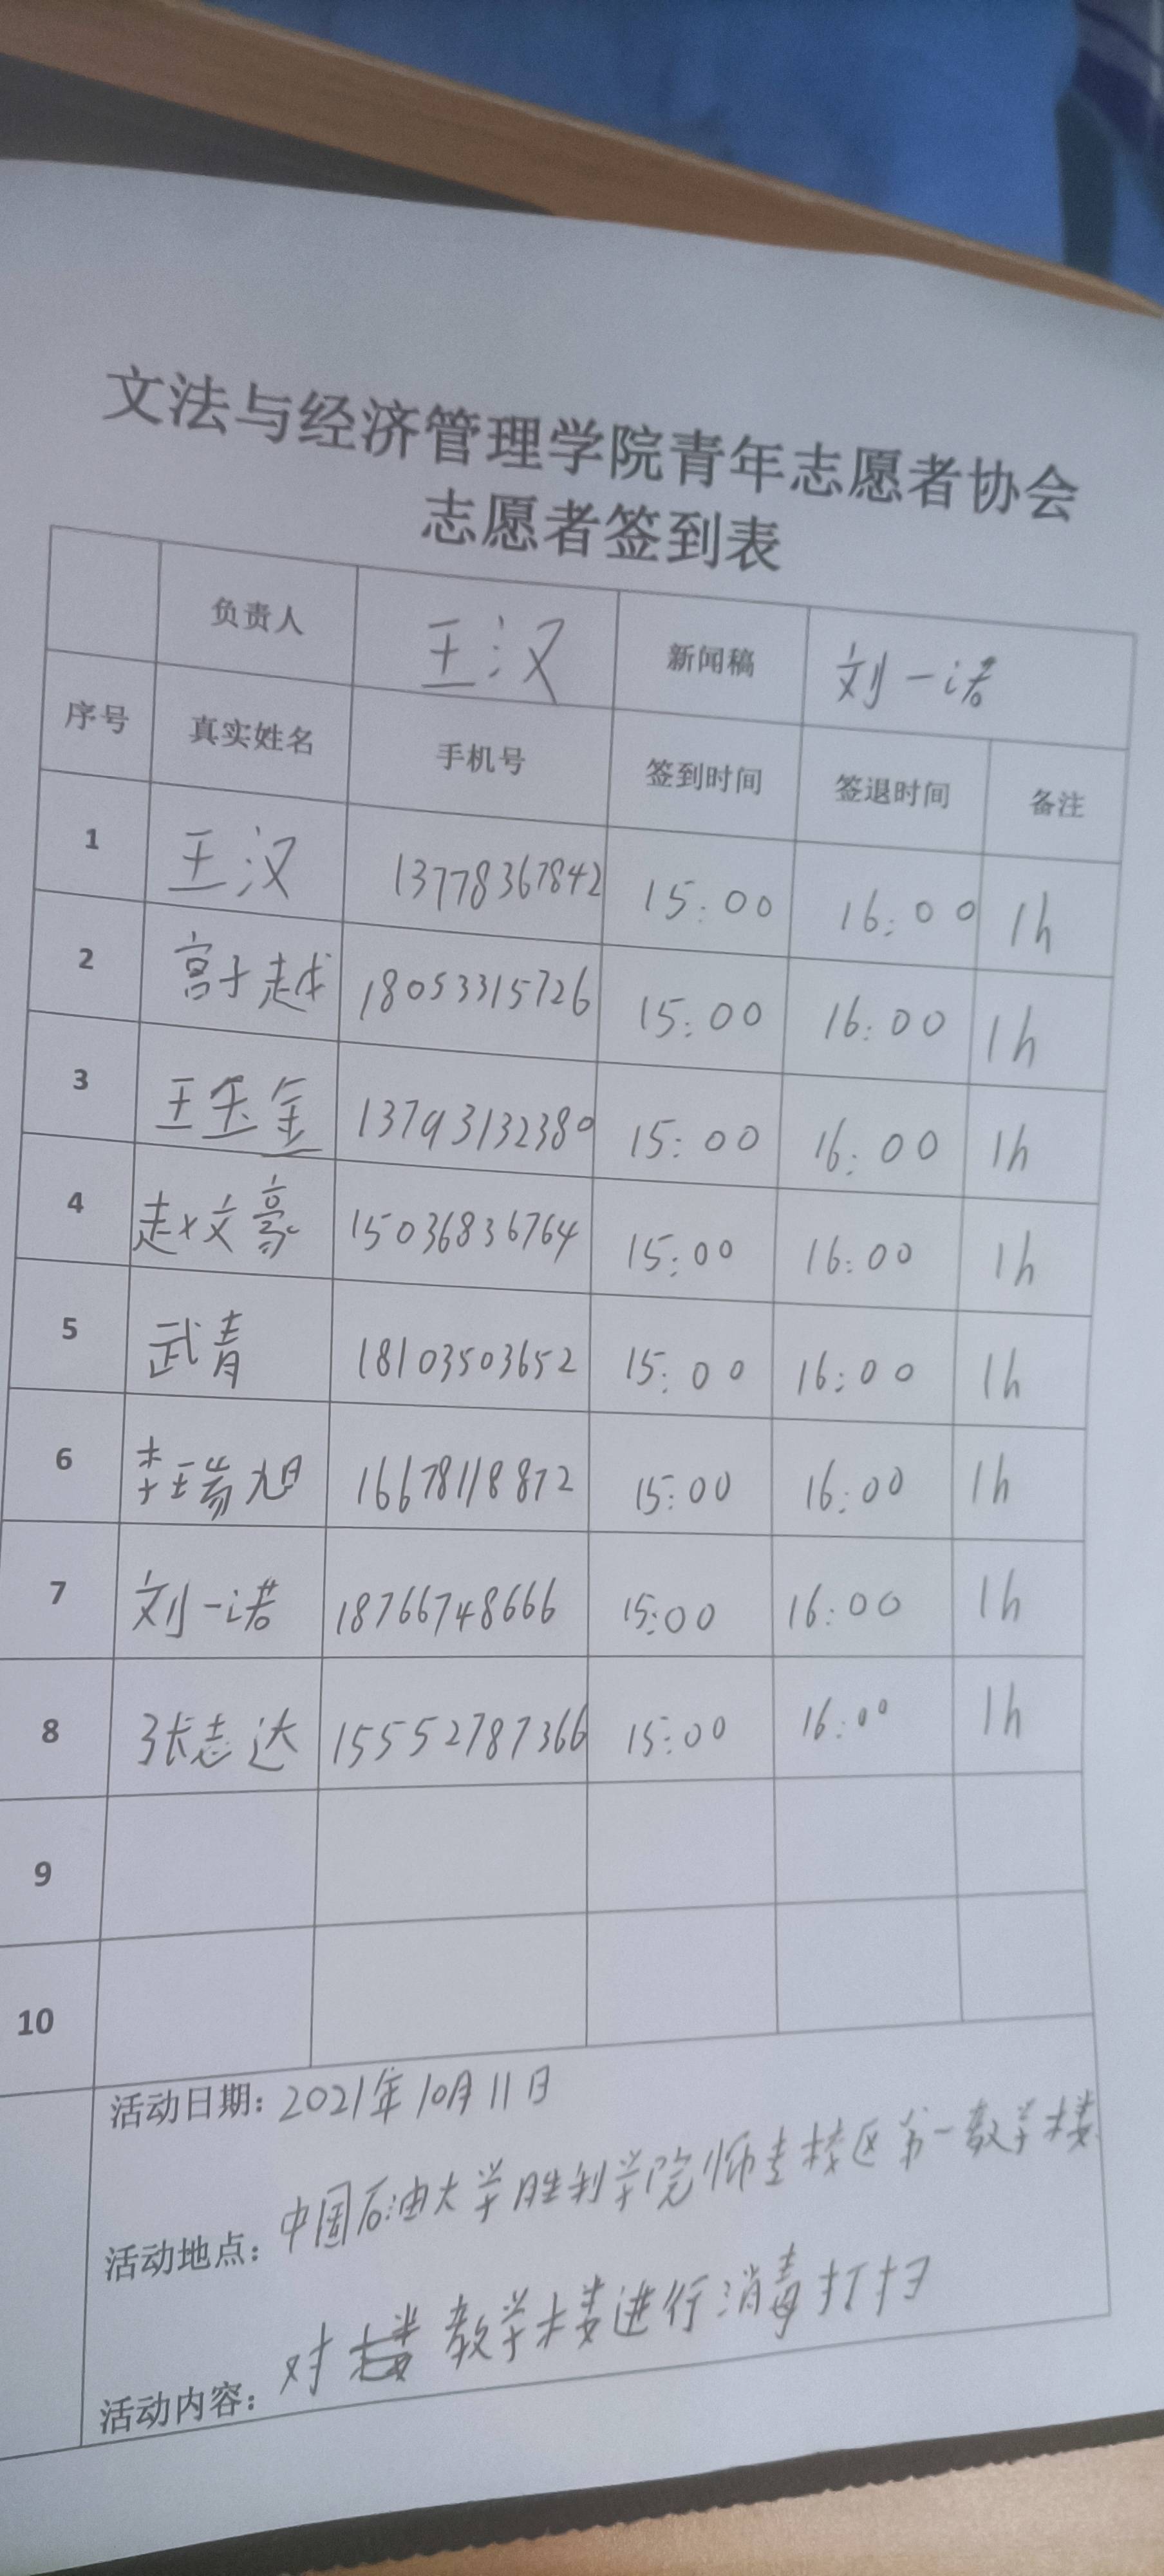 文法与经济管理学院青年志愿者协会
志愿者签到表
负责人 王汉 新闻稿 刘一诺
序号 真实姓名 手机号 签到时间 签退时间 备注
1 王汉 13778367842 15:00 16:00 1h
2 宫子越 18053315726 15:00 16:00 1h
3 王玉金 13793132380 15:00 16:00 1h
4 赵文豪 15036836764 15:00 16:00 1h
5 武青 18103503652 15:00 16:00 1h
6 李瑞旭 16678118872 15:00 16:00 1h
7 刘一诺 18766748666 15:00 16:00 1h
8 张志达 15552787366 15:00 16:00 1h
9
10
活动日期: 2021年10月11日
活动地点: 中国石油大学胜利学院师专校区第一教学楼
活动内容: 对教学楼进行消毒打扫